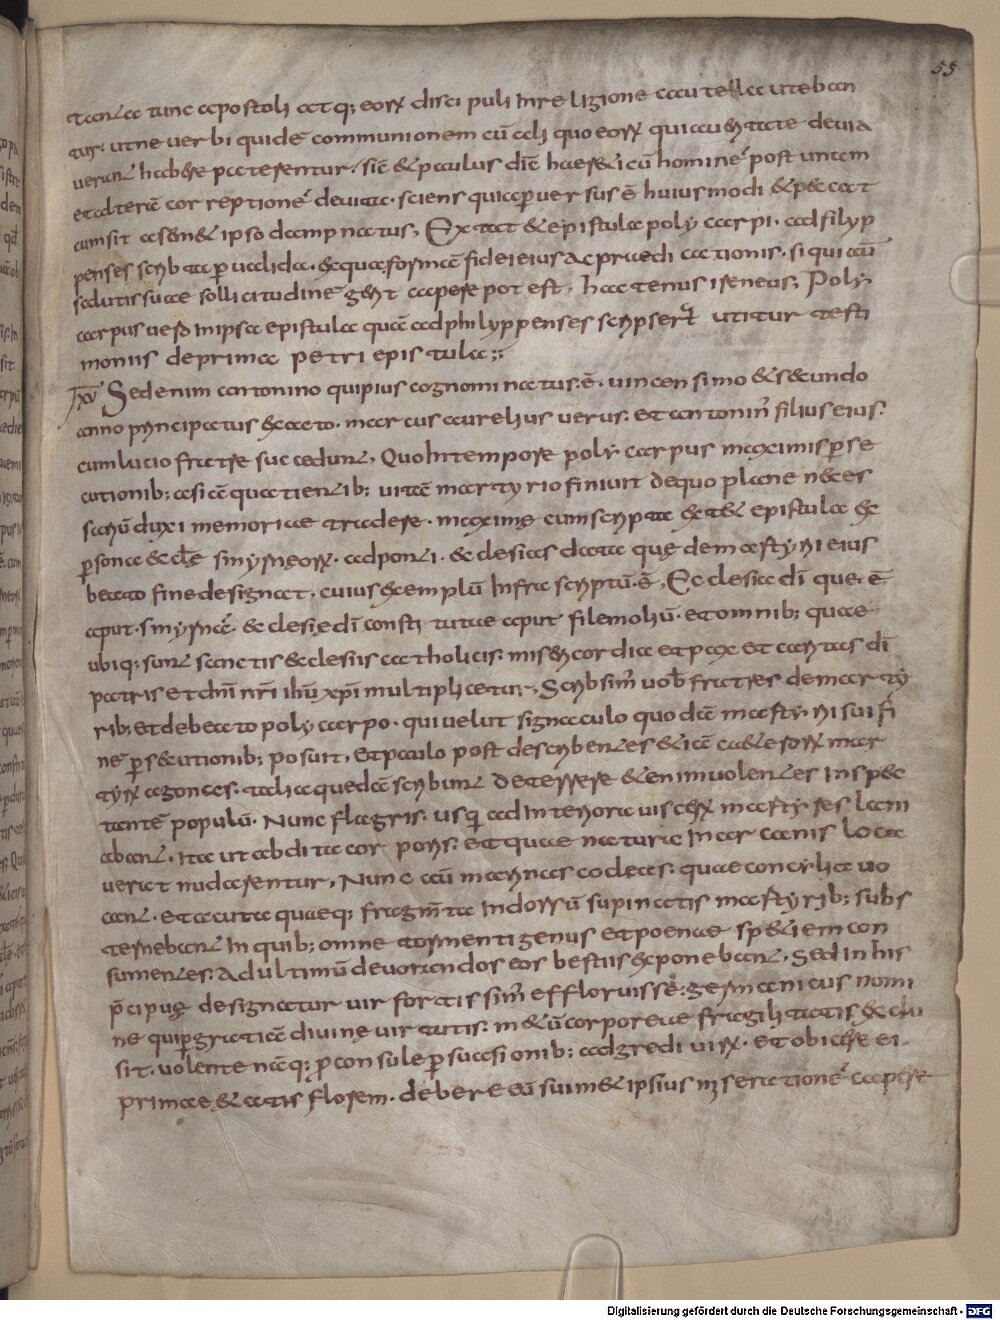 55
tanta tunc apostoli atq; eorꝝ discipuli in religione cautella uteban
tur. ut ne uerbi quidē communionem cū ali quo eorꝝ qui a ueritate deuia
uerant habere paterentur, sic & paulus dic̄ haereticū hominē post unam
et alterā correptionē deuita. sciens quia ꝑuersus ē huiusmodi & peccat
cum sit a sem& ipso dampnatus, Extat & epistula polycarpi. ad filyp
penses scribta ꝑualida. ex qua formā fidei eius ac praedicationis. si qui cū
salutis suae sollicitudinē gerit capere potest, hactenus ireneus; Poly
carpus uero in ipsa epistula quā ad philyppenses scripserat utitur testi
moniis de prima petri epistula;;
xv Sed enim antonino qui pius cognominatus. ē. uincensimo & secundo
anno principatus exacto. marcus aurelius uerus. et antonin̄ filius eius.
cum lucio fratre succedunt, Quo in tempore polycarpus maximis ꝑse
cutionib; asiā quatientib; uitā martyrio finiuit de quo plane neces
sariū duxi memoriae tradere. maxime cum scripta extet epistula ex
ꝑsona eccl̄e smyrneorꝝ. ad ponti. ecclesias data quę dem martyrii eius
beato fine designat, cuius exemplū infra scriptū. ē, Ecclesia dī que. ē
aput. smyrnā. ecclesię dī constitutae aput filemoliū. et omnib; quae
ubiq; sunt sanctis ecclesiis catholicis. misericordia et pax et caritas dī
patris et dn̄i nr̄i ihū xp̄i multiplicetur, Scribsim̄ uob̄ fratres de marty
rib; et de beato polycarpo. qui uelut signaculo quodā martyrii sui fi
nē ꝑsecutionib; posuit, Et paulo post describentes &iā ca&erorꝝ mar
tyrꝝ agones. talia quedā scribunt deterrere &enim uolentes inspec
tantē populū. Nunc flagris. usq; ad interiora uiscerꝝ martyres lani
abant. ita ut abdita corporis. et quae natura in arcanis loca
uerat nudarentur, Nunc aū marinas codeas. quae concylia uo
cant. et acuta quaeq; fragm̄ta in dorsū supinatis martyrib; subs
ternebant in quib; omne tormenti genus et poenae speciem con
sumentes. Ad ultimū deuorandos eos bestiis exponebant, Sed in his
p̄cipuę designatur uir fortissim̄ effloruisse. germanicus nomi
ne qui ꝑ gratiā diuinę uirtutis. m&ū corporeae fragilitatis exclu
sit. uolente nāq; ꝓconsule ꝑsuasionib; adgredi uirꝝ. et obicere ei.
primae &atis florem. debere eū sui m& ipsius miserationē capere
Digitalisierung gefördert durch die Deutsche Forschungsgemeinschaft - DFG